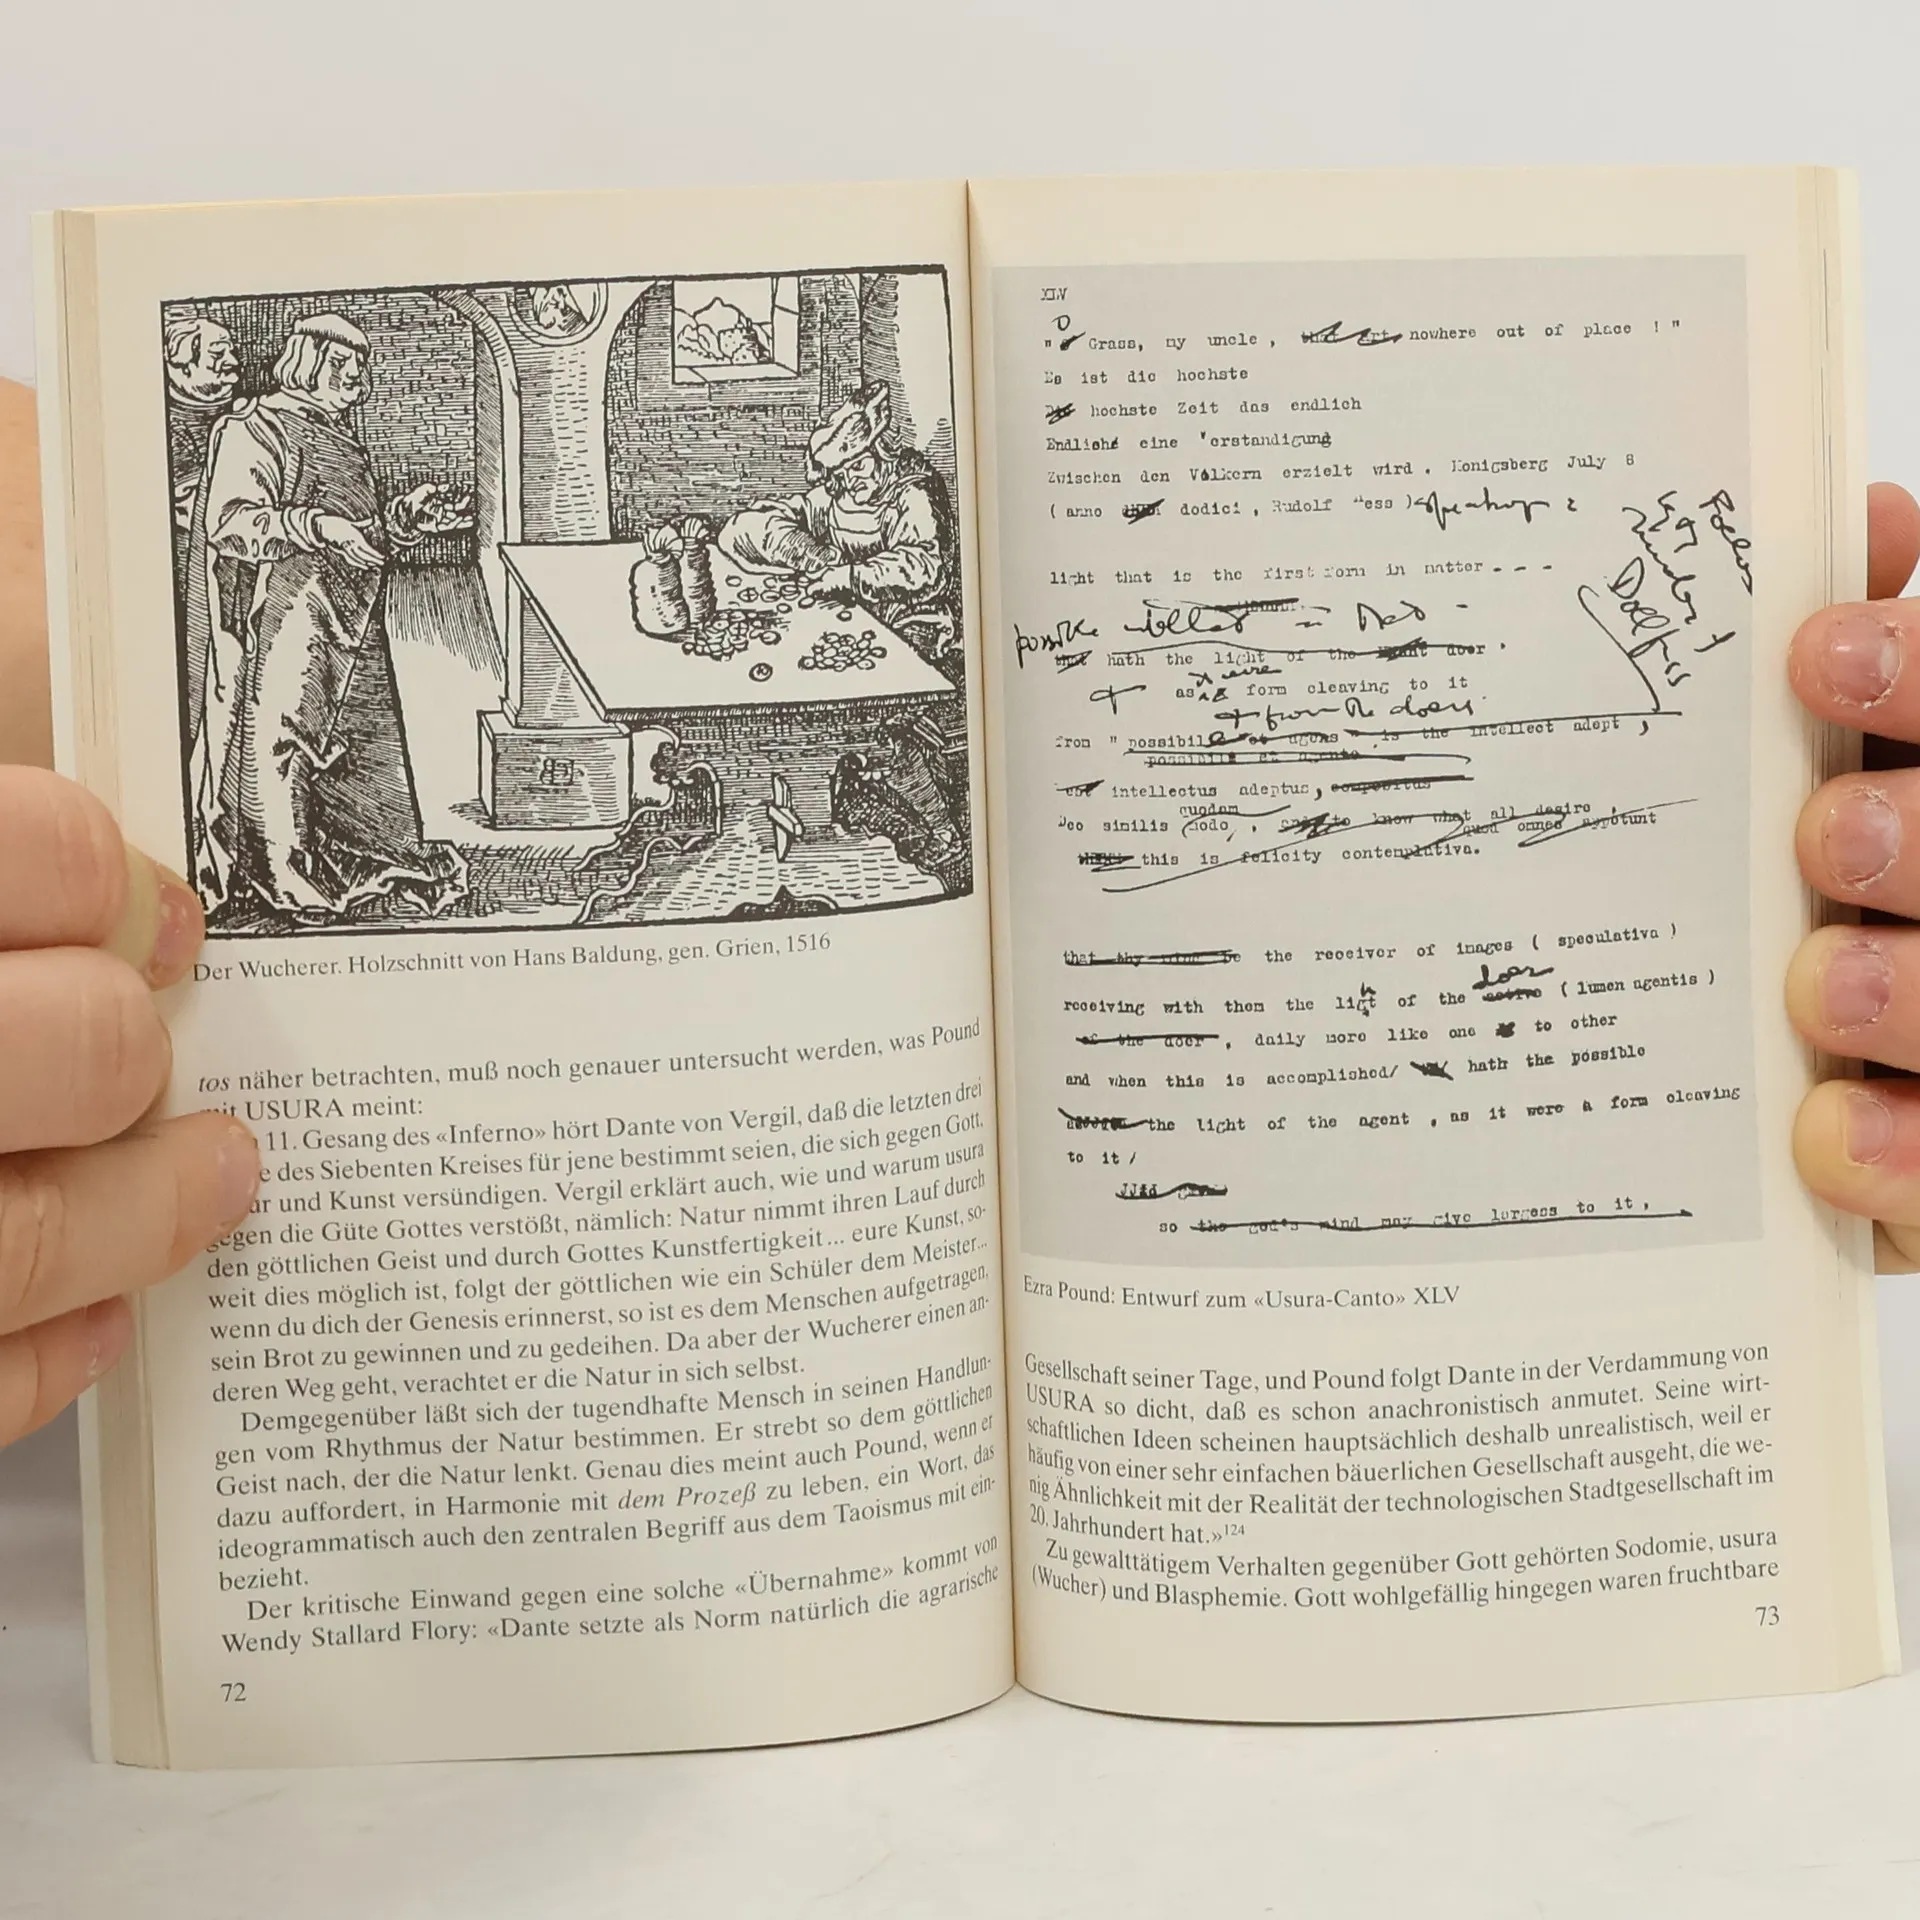 Der Wucherer. Holzschnitt von Hans Baldung, gen. Grien, 1516
tos näher betrachten, muß noch genauer untersucht werden, was Pound
mit USURA meint:
11. Gesang des «Inferno» hört Dante von Vergil, daß die letzten drei
des Siebenten Kreises für jene bestimmt seien, die sich gegen Gott,
und Kunst versündigen. Vergil erklärt auch, wie und warum usura
gegen die Güte Gottes verstößt, nämlich: Natur nimmt ihren Lauf durch
den göttlichen Geist und durch Gottes Kunstfertigkeit... eure Kunst, so-
weit dies möglich ist, folgt der göttlichen wie ein Schüler dem Meister...
wenn du dich der Genesis erinnerst, so ist es dem Menschen aufgetragen,
sein Brot zu gewinnen und zu gedeihen. Da aber der Wucherer einen an-
deren Weg geht, verachtet er die Natur in sich selbst.
Demgegenüber läßt sich der tugendhafte Mensch in seinen Handlun-
gen vom Rhythmus der Natur bestimmen. Er strebt so dem göttlichen
Geist nach, der die Natur lenkt. Genau dies meint auch Pound, wenn er
dazu auffordert, in Harmonie mit dem Prozeß zu leben, ein Wort, das
ideogrammatisch auch den zentralen Begriff aus dem Taoismus mit ein-
bezieht.
Der kritische Einwand gegen eine solche «Übernahme» kommt von
Wendy Stallard Flory: «Dante setzte als Norm natürlich die agrarische
72
XLV
O
" Grass, my uncle, nowhere out of place ! "
Es ist die hochste
hochste Zeit das endlich
Endliche eine Verstandigung
Zwischen den Volkern erzielt wird . Konigsberg July 8
( anno dodici , Rudolf Hess ) speaking :
light that is the first form in matter - - -
possible
that hath the light of the door .
as form cleaving to it
+ from the doers
from " possibile et agens " is the intellect adept ,
possibile et agente
intellectus adeptus, compositus
quodam
Deo similis modo, , to know what all desire ,
quod omnes appetunt
this is felicity contemplativa.
that thy be the receiver of images ( speculativa )
doer
receiving with them the light of the active ( lumen agentis )
of the doer , daily more like one to other
and when this is accomplished/ hath the possible
the light of the agent , as it were a form cleaving
to it /
so the god's mind may give largess to it ,
Ezra Pound: Entwurf zum «Usura-Canto» XLV
Gesellschaft seiner Tage, und Pound folgt Dante in der Verdammung von
USURA so dicht, daß es schon anachronistisch anmutet. Seine wirt-
schaftlichen Ideen scheinen hauptsächlich deshalb unrealistisch, weil er
häufig von einer sehr einfachen bäuerlichen Gesellschaft ausgeht, die we-
nig Ähnlichkeit mit der Realität der technologischen Stadtgesellschaft im
20. Jahrhundert hat.»124
Zu gewalttätigem Verhalten gegenüber Gott gehörten Sodomie, usura
(Wucher) und Blasphemie. Gott wohlgefällig hingegen waren fruchtbare
73